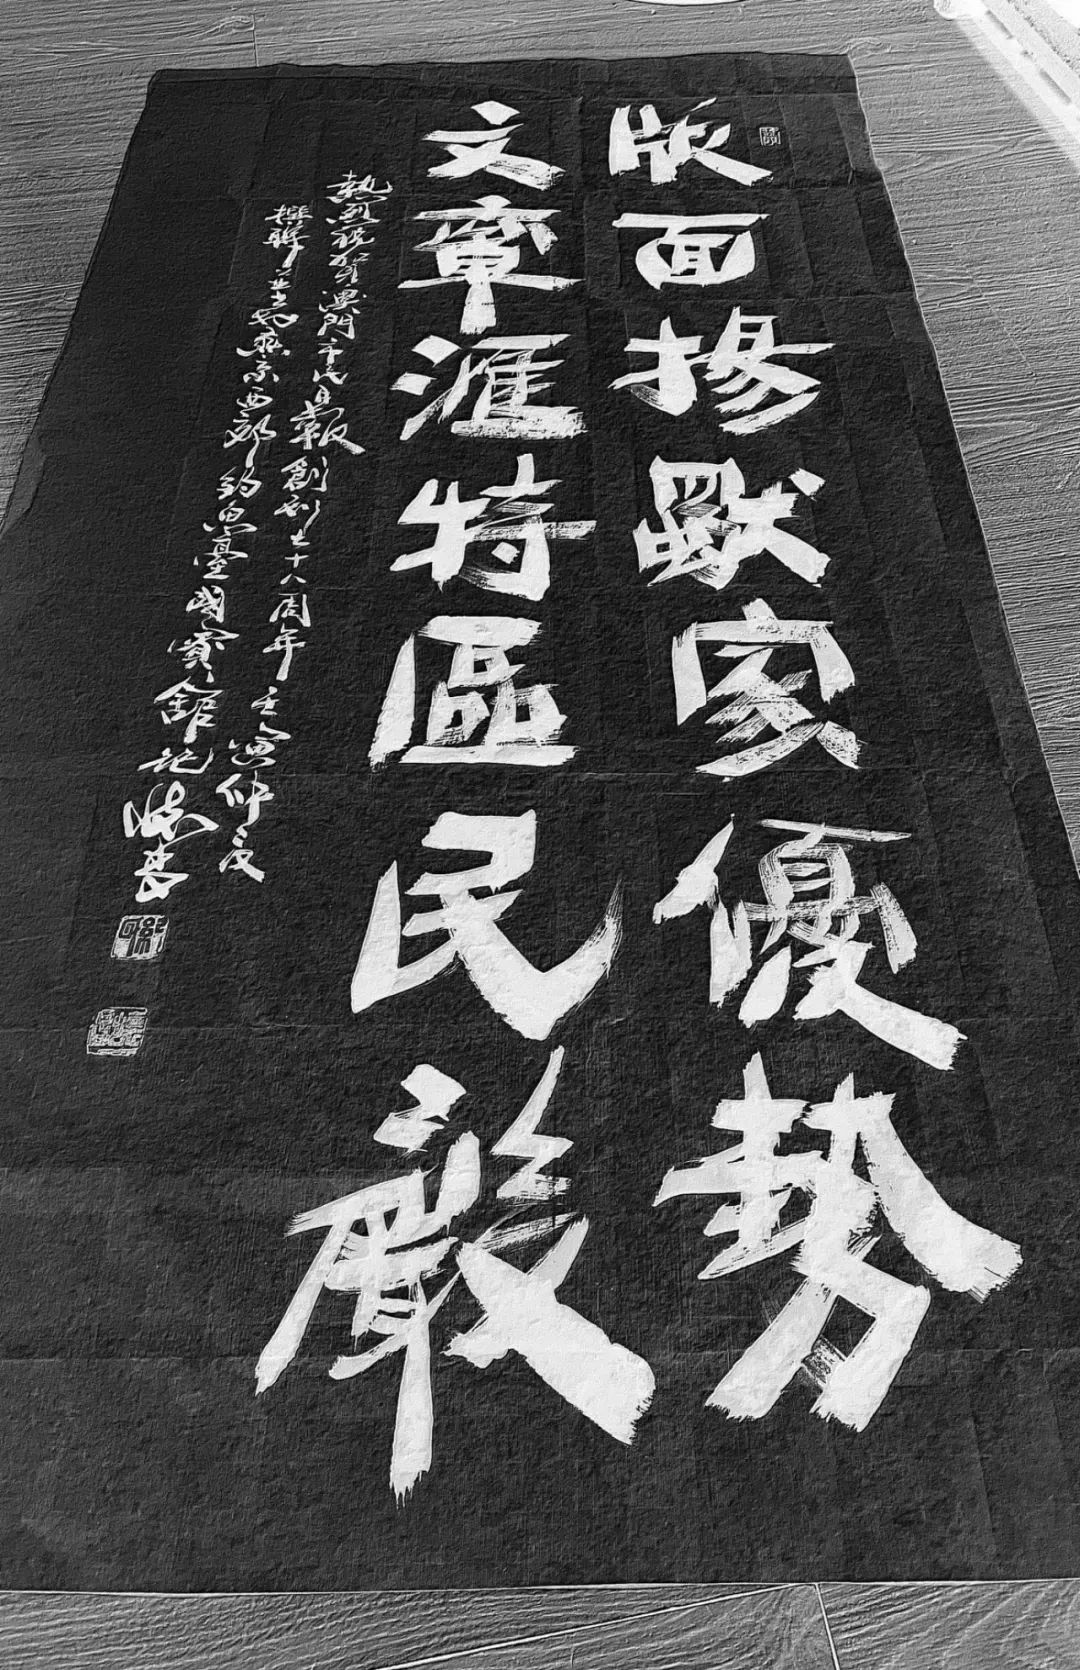 版面揚獸家優勢
文章滙特區民嚴
熱烈祝賀澳門市民日報創刊七十八周年壬寅仲夏
撰聯並書於燕京西郊釣魚臺國賓館